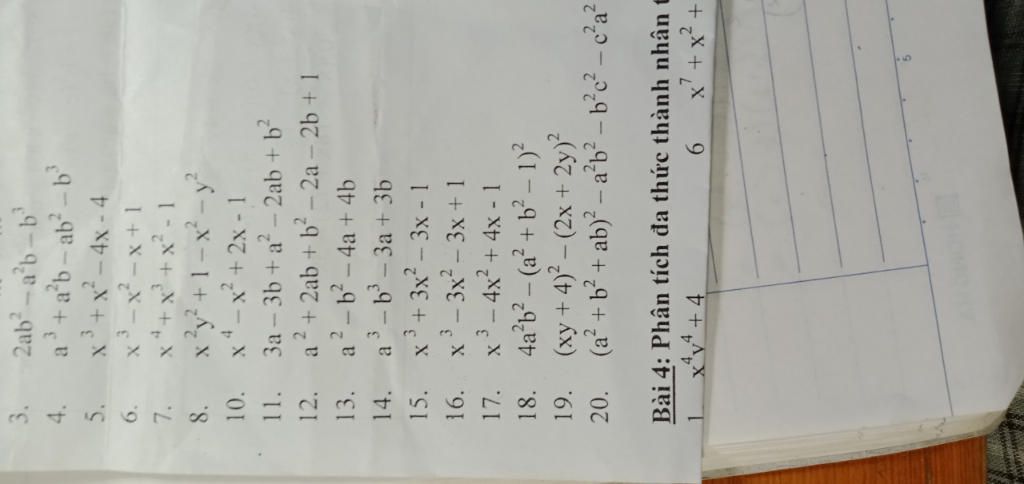 3. 2ab² – a²b – b³
4. a³ + a²b – ab² – b³
5. x³ + x² – 4x - 4
6. x³ – x² – x + 1
7. x⁴ + x³ + x² - 1
8. x²y² + 1 – x² – y²
10. x⁴ – x² + 2x - 1
11. 3a – 3b + a² – 2ab + b²
12. a² + 2ab + b² – 2a – 2b + 1
13. a² – b² – 4a + 4b
14. a³ – b³ – 3a + 3b
15. x³ + 3x² – 3x - 1
16. x³ – 3x² – 3x + 1
17. x³ – 4x² + 4x - 1
18. 4a²b² – (a² + b² – 1)²
19. (xy + 4)² – (2x + 2y)²
20. (a² + b² + ab)² – a²b² – b²c² – c²a²
Bài 4: Phân tích đa thức thành nhân
1 x⁴y⁴ + 4 6 x⁷ + x² +
5